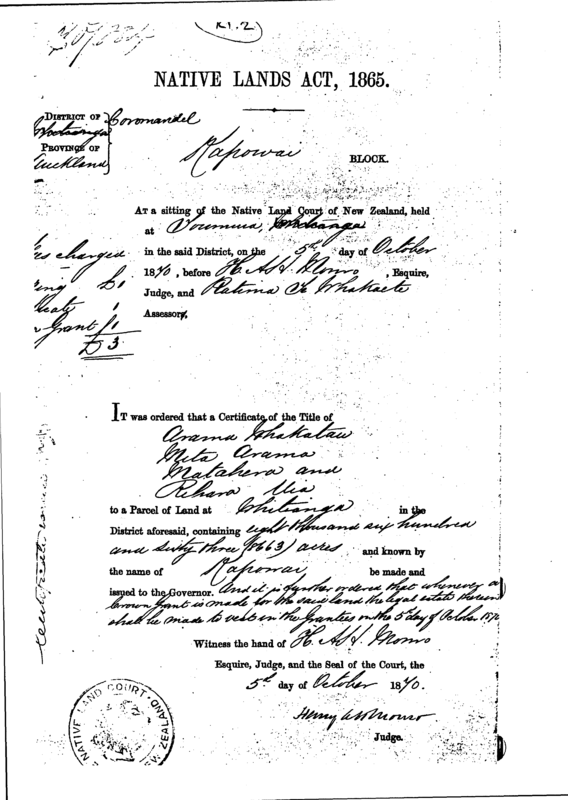 KP.2
NATIVE LANDS ACT, 1865.
DISTRICT OF Coromandel
PROVINCE OF
Auckland
Kapowai BLOCK.
AT a sitting of the Native Land Court of New Zealand, held
at
in the said District, on the 5th day of October
1870, before H A H Monro, Esquire,
Judge, and Ratima Te Whakaete
Assessor,
charged
£1
1
Grant £1
£3
IT was ordered that a Certificate of the Title of
Arama Whakatau
Mita Arama
Matahera and
Rihara
to a Parcel of Land at Whitianga in the
District aforesaid, containing eight thousand six hundred
and sixty three (8663) acres and known by
the name of Kapowai be made and
issued to the Governor. And it is further ordered that whenever a
Crown Grant is made for the said land the legal estate therein
shall be made to vest in the Grantees on the 5th day of October 1870
Witness the hand of H A H Monro
Esquire, Judge, and the Seal of the Court, the
5th day of October 1870.
Henry A H Monro
Judge.
NATIVE LAND COURT
ZEALAND